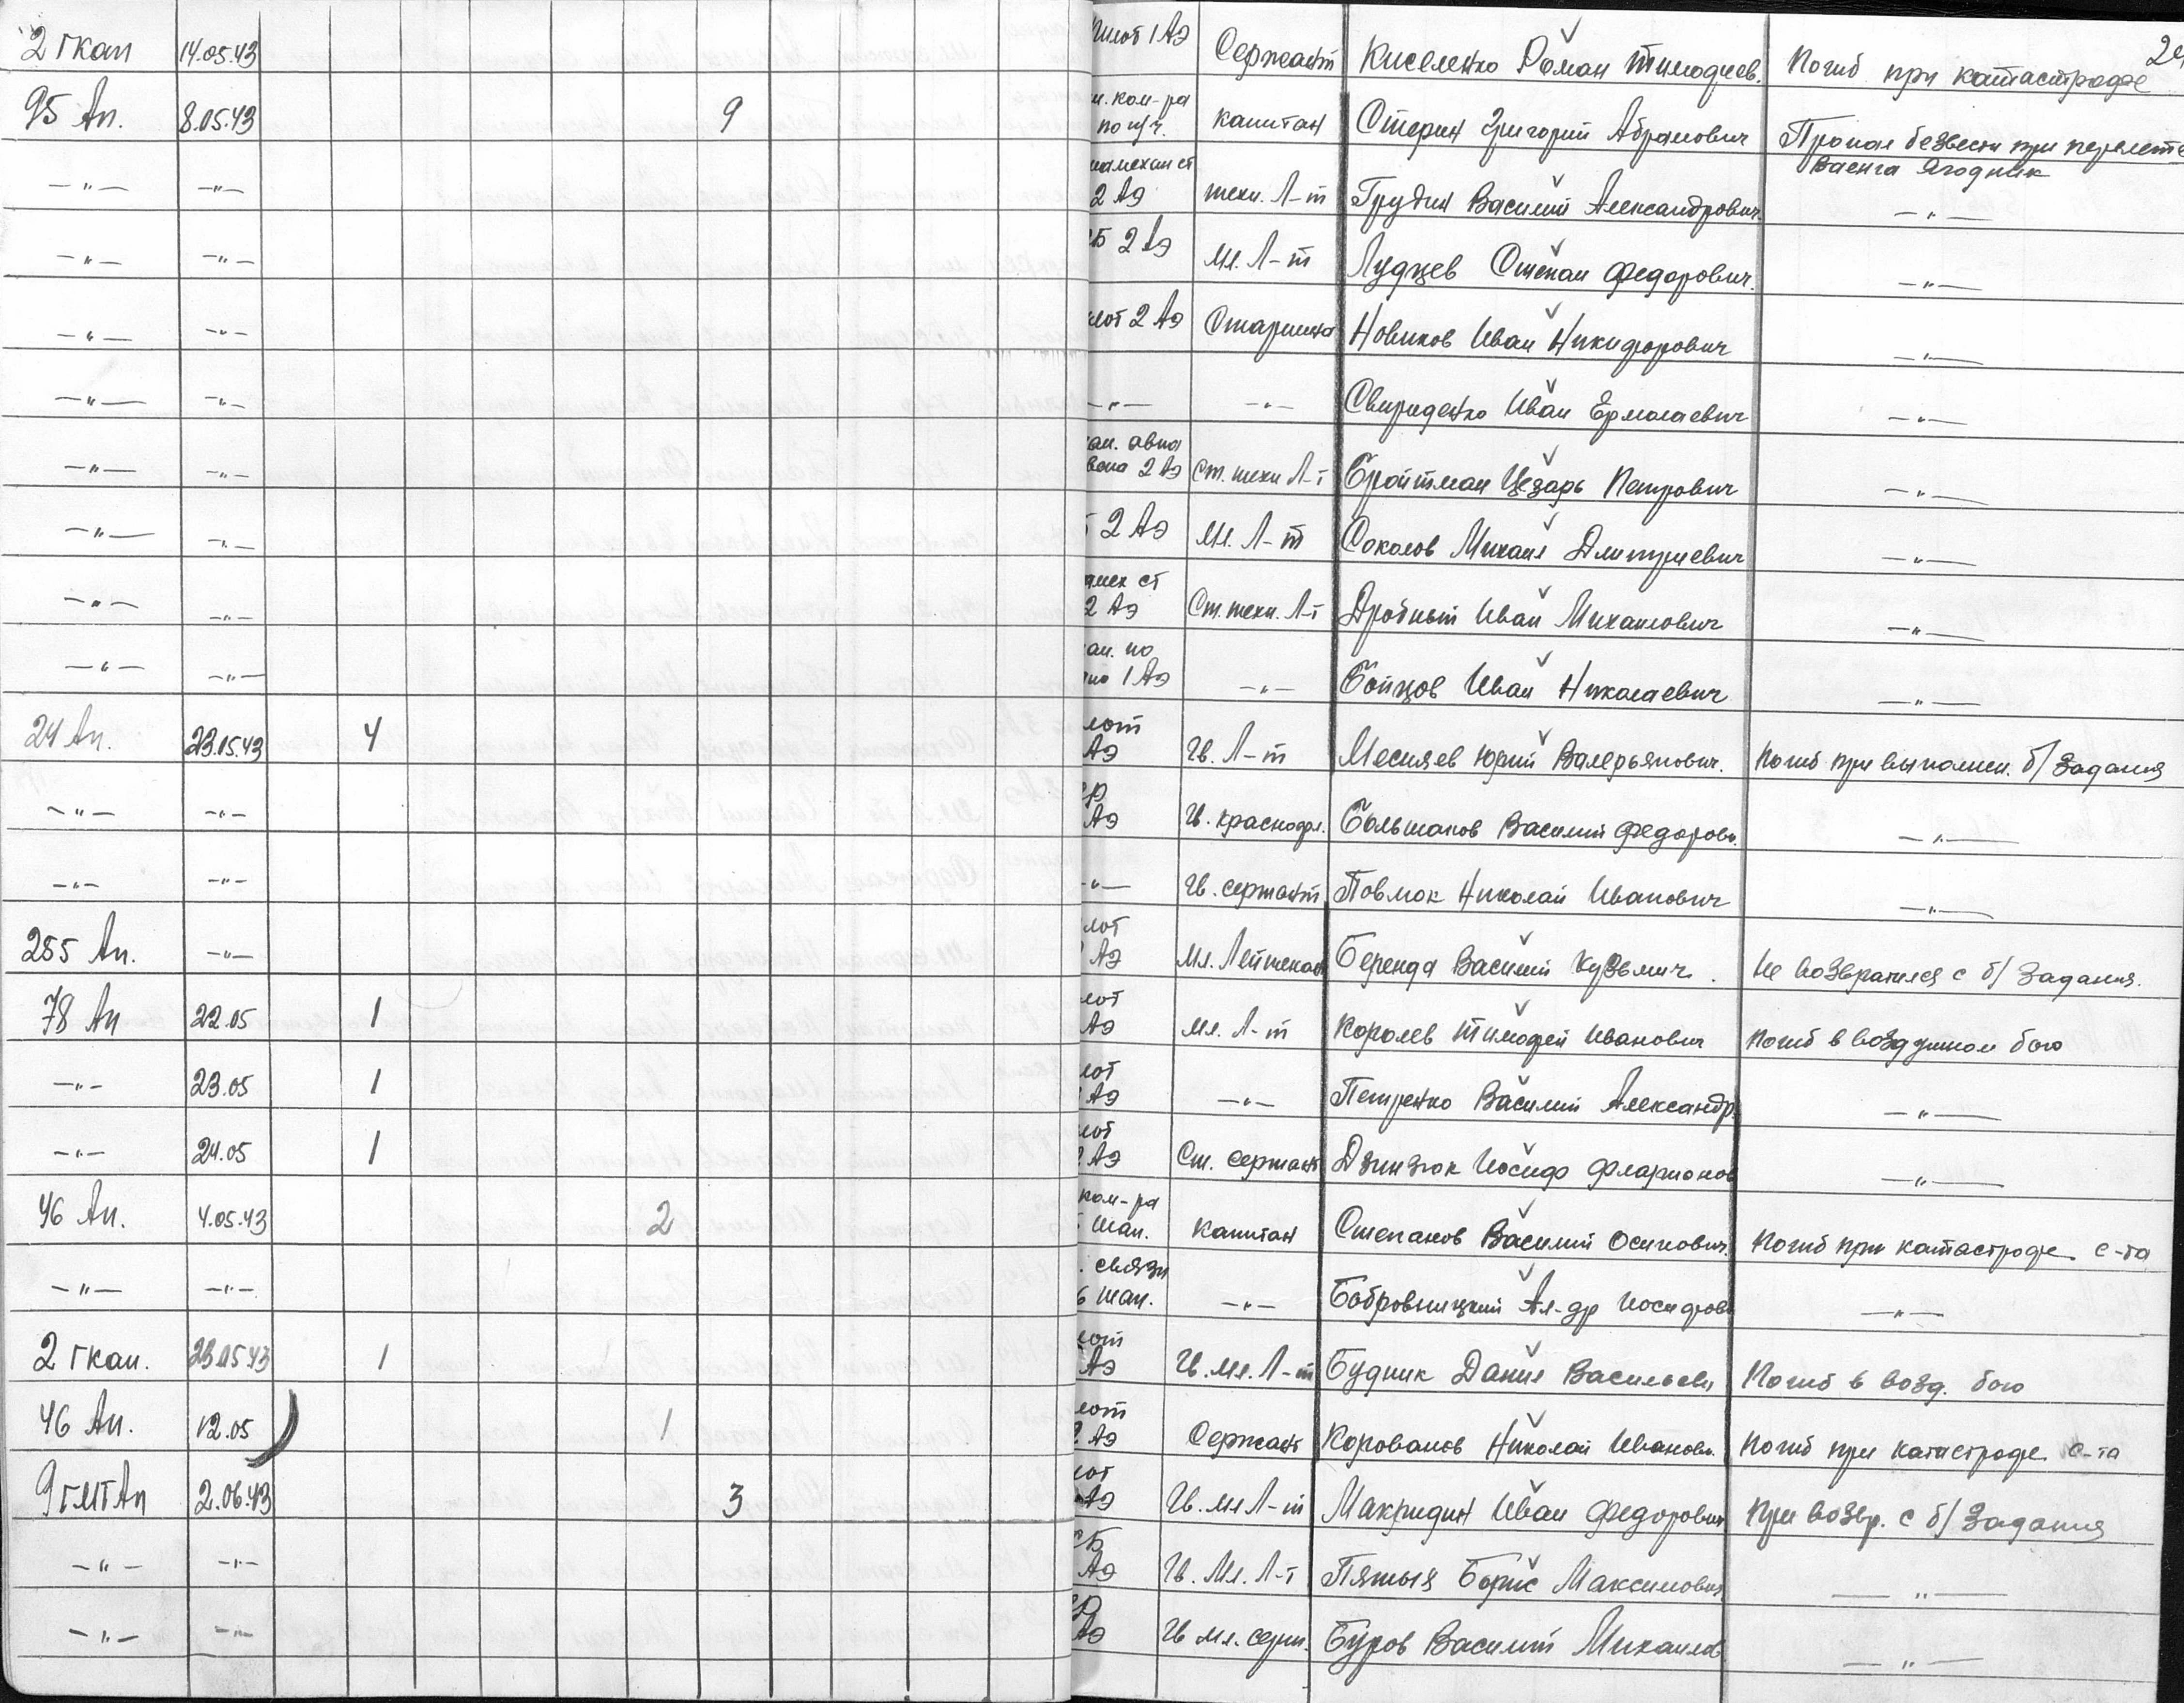 2 гкап 14.05.43 Пилот 1 Аэ Сержант Киселенко Роман Тимофеев. Погиб при катастрофе
95 Ап. 8.05.43 9 ком-ра по л/ч. капитан Стерин Григорий Абрамович Пропал безвести при перелете
Ваенга Ягодник
—"— —"— 2 Аэ техн. Л-т Грудин Василий Александрович. —"—
—"— —"— 2 Аэ Мл. Л-т Лудцев Степан Федорович. —"—
—"— —"— лот 2 Аэ Старшина Новиков Иван Никифорович —"—
—"— —"— —"— —"— Свириденко Иван Ермолаевич —"—
—"— —"— авиа 2 Аэ Ст. техн Л-т Бройтман Цезарь Петрович —"—
—"— —"— 2 Аэ Мл. Л-т Соколов Михаил Дмитриевич —"—
—"— —"— мех ст 2 Аэ Ст. техн. Л-т Дробный Иван Михайлович —"—
—"— —"— по 1 Аэ —"— Бойцов Иван Николаевич —"—
24 Ап. 23.05.43 4 лот Аэ Гв. Л-т Месияев Юрий Валерьянович. Погиб при выполнен. б/задания
—"— —"— Аэ Гв. краснофл. Большаков Василий Федоров. —"—
—"— —"— —"— Гв. сержант Повмок Николай Иванович —"—
255 Ап. —"— лот Аэ Мл. Лейтенант Беренда Василий Кузьмич. Не возвратился с б/задания.
78 Ап 22.05 1 лот Аэ Мл. Л-т Королев Тимофей Иванович Погиб в воздушном бою
—"— 23.05 1 лот Аэ —"— Петренко Василий Александр. —"—
—"— 24.05 1 лот 2 Аэ Ст. Сержант Дзинзюк Иосиф Фларионов —"—
46 Ап. 4.05.43 2 ком-ра шап. капитан Степанов Василий Осипович. Погиб при катастрофе с-та
—"— —"— связи шап. —"— Бобровницкий Ал-др Иосифов —"—
2 гкап. 23.05.43 1 лот Аэ Гв. мл. Л-т Будник Данил Васильеви Погиб в возд. бою
46 Ап. 12.05 1 лот 2 Аэ Сержант Корованов Николай Иванови. Погиб при катастрофе с-та
9 гмтАп 2.06.43 3 лот Аэ Гв. мл Л-т Макридин Иван Федорович При возвр. с б/задания
—"— —"— Аэ Гв. Мл. Л-т Пятыя Борис Максимович —"—
—"— —"— Аэ Гв мл. серж. Буров Василий Михайлов —"—